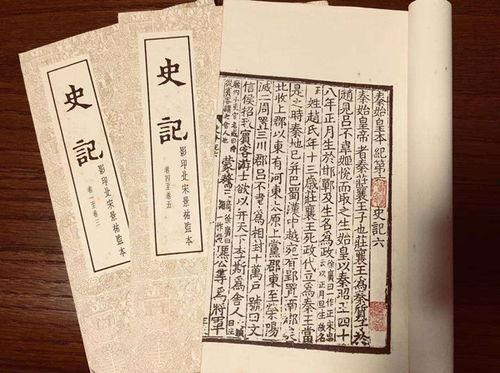 史記
影印北宋景祐監本
卷一至卷三
史記
影印北宋景祐監本
卷四至卷五
秦始皇本紀第六 史記六
秦始皇帝者秦莊襄王子也莊襄王爲秦質子於
趙見呂不韋姬悅而取之生始皇以秦昭王四十
八年正月生於邯鄲及生名爲政
姓趙氏年十三歲莊襄王死政代立爲秦王當
是之時秦地已并巴蜀漢中越宛有郢置南郡矣
北收上郡以東有河東太原上黨郡東至滎陽
滅二周置三川郡呂不韋爲相封十萬戶號曰文
信侯招致賓客游士欲以并天下李斯爲舍人
蒙驁 王齮 麃公等爲將軍